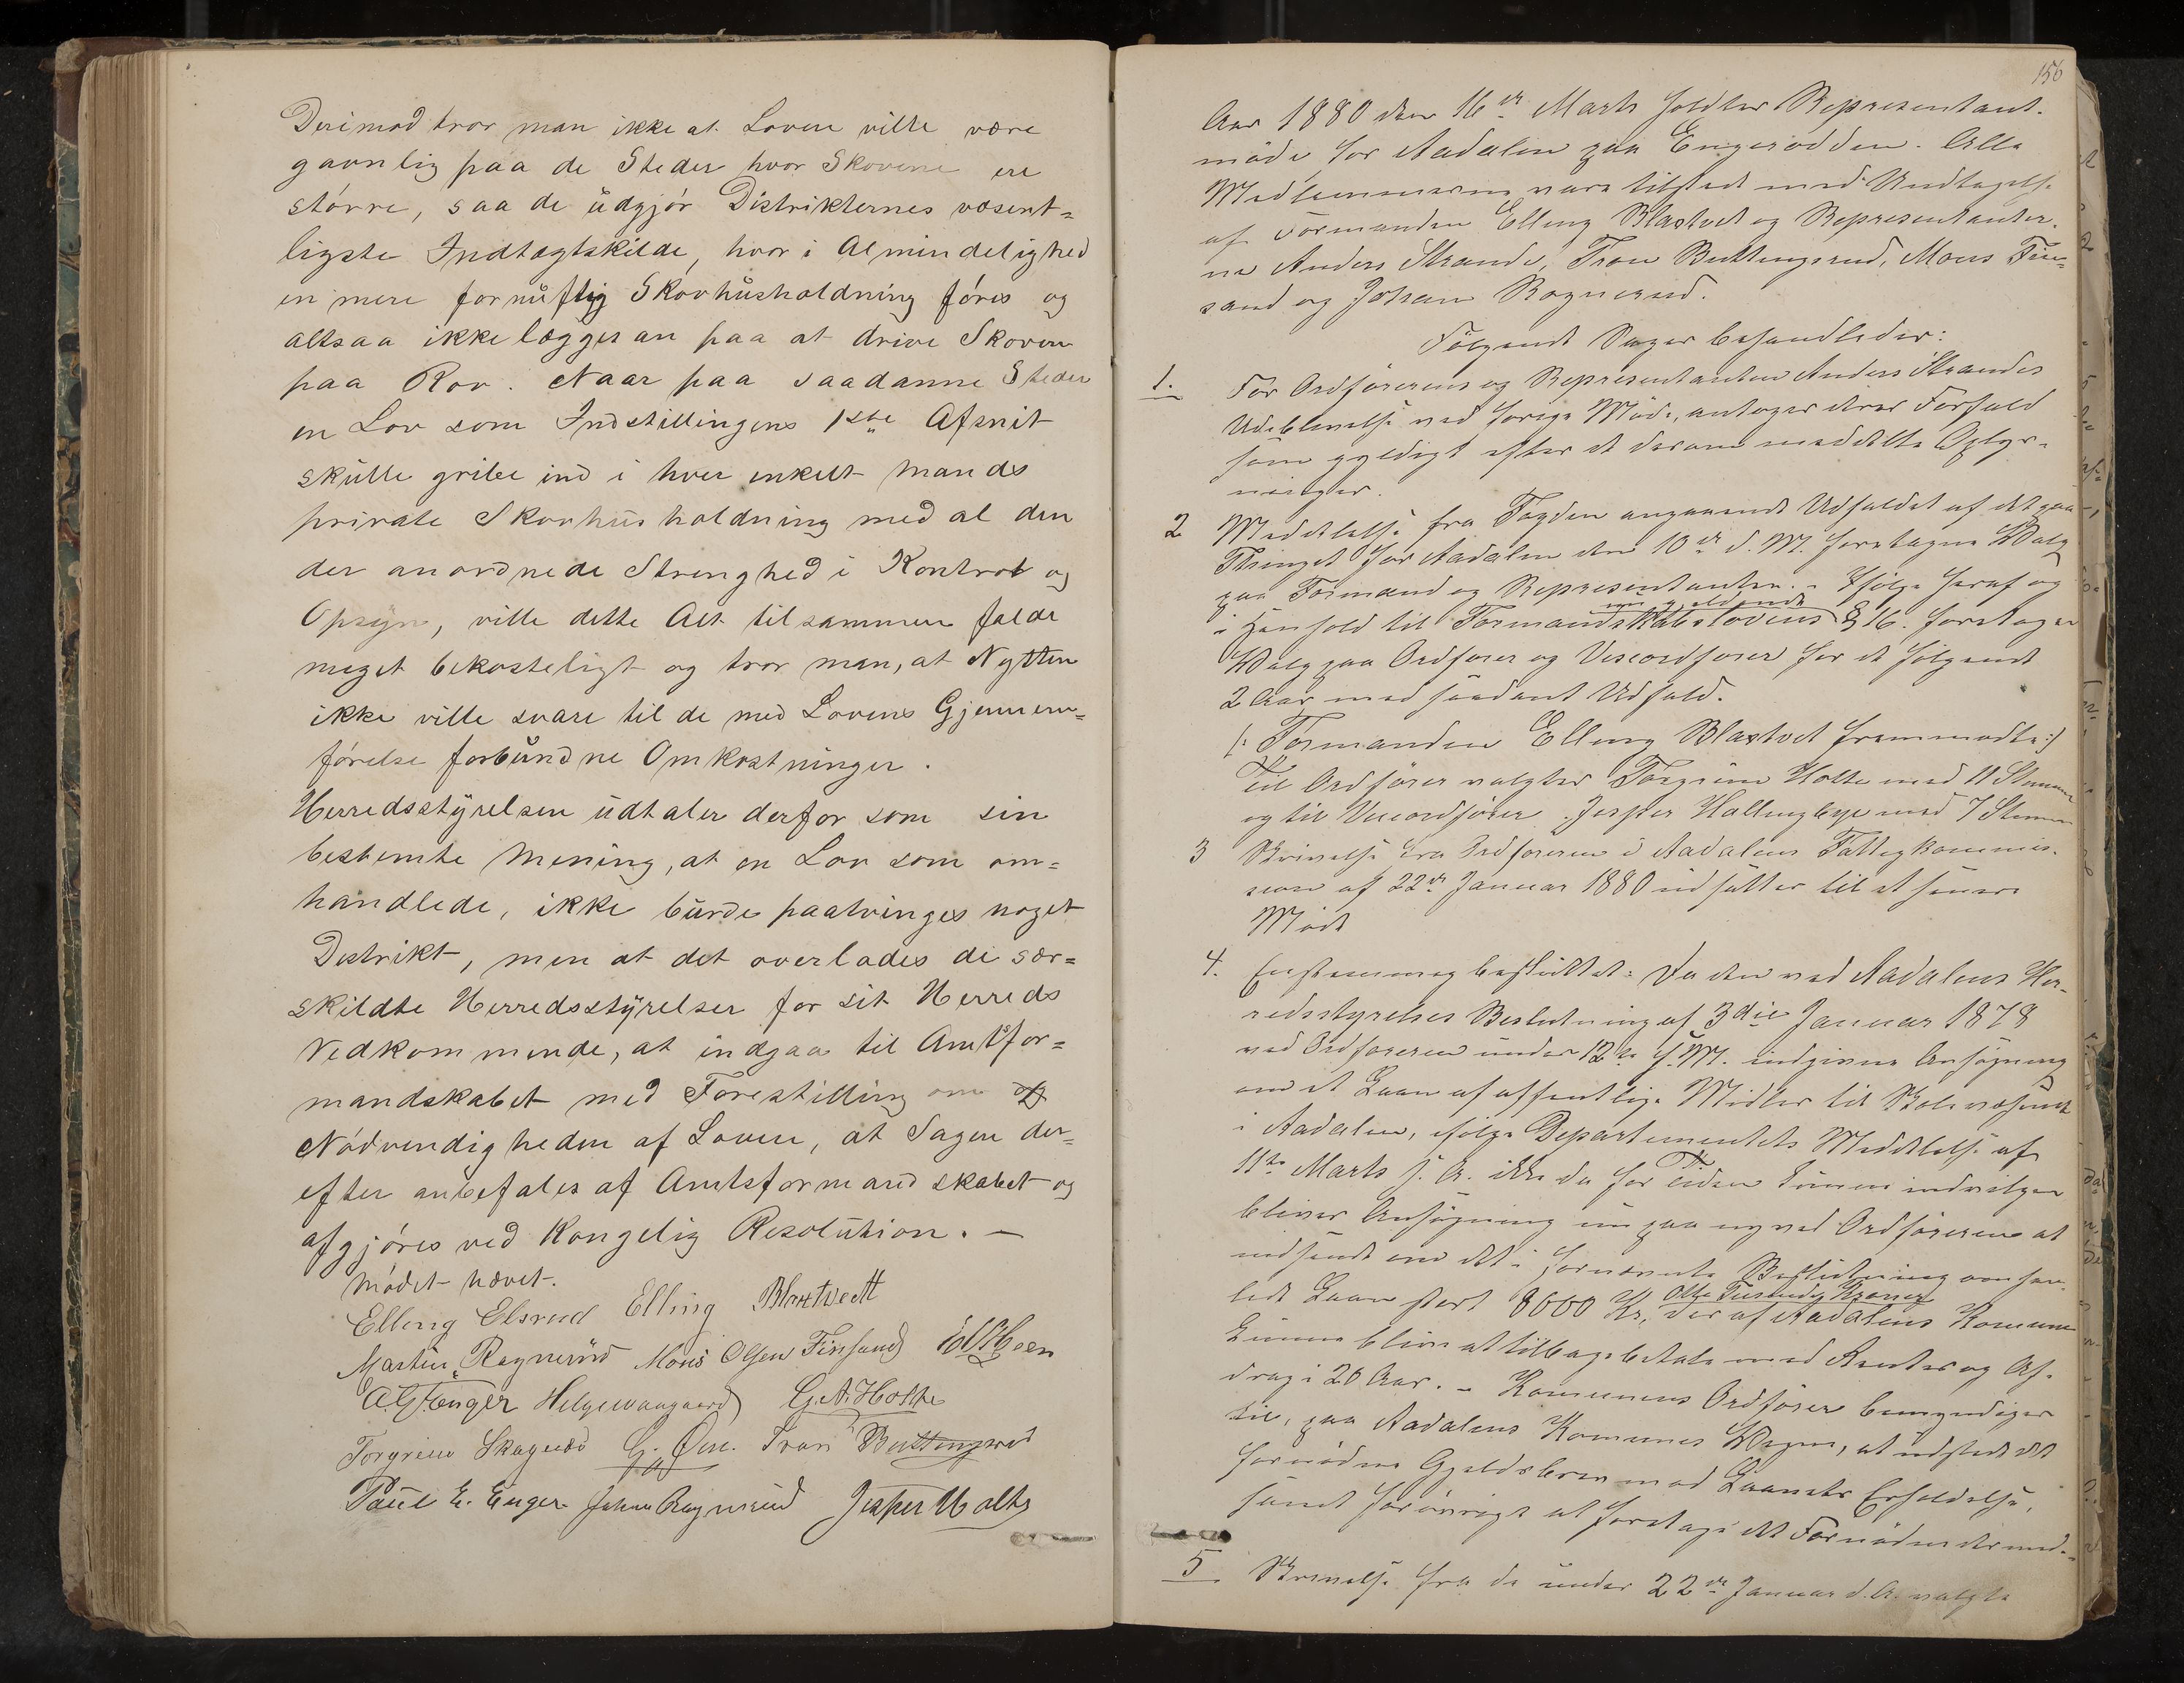 Derimod tror man ikke at Loven vilde være
gavnlig paa de Steder hvor Skovene ere
större, saa de udgjör Distrikternes væsent-
ligste Indtægtskilde, hvor i Almindelighed
en mere fornuftig Skovhusholdning föres og
altsaa ikke lægges an paa at drive Skoven
paa Rov. Naar paa saadanne Steder
en Lov som Indstillingens 1ste Afsnit
skulle gribe ind i hver enkelt Mands
private Skovhusholdning med al den
der anordnede Strenghed i Kontrol og
Opsyn, ville dette Alt tilsammen falde
meget bekosteligt og tror man, at Nytten
ikke ville svare til de med Lovens Gjennem-
förelse forbundne Omkostninger.
Herredsstyrelsen udtaler derfor som sin
bestemte Mening, at en Lov som om-
handlede, ikke burde paatvinges noget
Distrikt, men at det overlades de sær-
skildte Herredsstyrelser for sit Herreds
Vedkommende, at indgaa til Amtsfor-
mandskabet med Forestilling om
Nödvendigheden af Loven, at Sagen der-
efter anbefales af Amtsformandskabet og
afgjöres ved Kongelig Resolution. —
Mödet hævet.
Elling Elsrud Elling Blaxtvedt
Martin Ragnerud Mons Olsen Finsand
A. G. Enger Helge G. A. Holte
Torgrim Skagnæs Tron Buttingsrud
Paul E. Enger Johan Ragnerud Jesper Holte
156
Aar 1880 den 16de Marts holdtes Repræsentant-
möde for Aadalen paa Engerodden. Alle
Medlemmerne vare tilstede med Undtagelse
af Formanden Elling Blaxtvet og Repræsentanter-
ne Anders Strande, Tron Buttingsrud, Mons Fin-
sand og Johan Ragnerud.
Fölgende Sager behandledes:
1. For Ordförerens og Repræsentanten Anders Strandes
Udeblivelse ved forrige Möde, antoges deres Forfald
som gyldigt efter de derom meddelte Oplys-
ninger.
2 Meddelelse fra Fogden angaaende Udfaldet af det paa
Thinget for Aadalen den 10de d. M. foretagne Valg
paa Formænd og Repræsentanter. - Ifölge heraf og
nu gjeldende
i Henhold til Formandskabslovens § 16. foretoges
Valg paa Ordförer og Viceordförer for de fölgende
2 Aar med saadant Udfald.
(: Formanden Elling Blaxtvet fremmödte:)
Til Ordförer valgtes Torgrim Holte med 11 Stemmer
og til Viceordförer Jesper Hallingbye med 7 Stemmer
3 Skrivelse fra Ordföreren i Aadalens Fattigkommis-
sion af 22de Januar 1880 udsættes til et senere
Möde
4. Enstemmig besluttet: Da den ved Aadalens Her-
redsstyrelses Beslutning af 3die Januar 1878
ved Ordföreren under 12te s. M. indgivne Ansögning
om et Laan af offentlige Midler til Skolevæsenet
i Aadalen, ifölge Departementets Meddelelse af
11te Marts s. A. ikke da for Tiden kunne indvilges
bliver Ansögning nu paa ny ved Ordföreren at
indsende om det i fornævnte Beslutning omhan-
Otte Tusinde Kroner
lede Laan stort 8000 Kr, der af Aadalens Komune
kunne blive at tilbagebetale med Renter og Af-
drag i 20 Aar. - Komunens Ordförer bemyndiges
til, paa Aadalens Komunes Vegne, at udstede det
fornödne Gjeldsbrev mod Laanets Erholdelse,
samt forövrigt at foretage det Fornödne dermed.
5 Skrivelse fra de under 22de Januar d. A. valgte